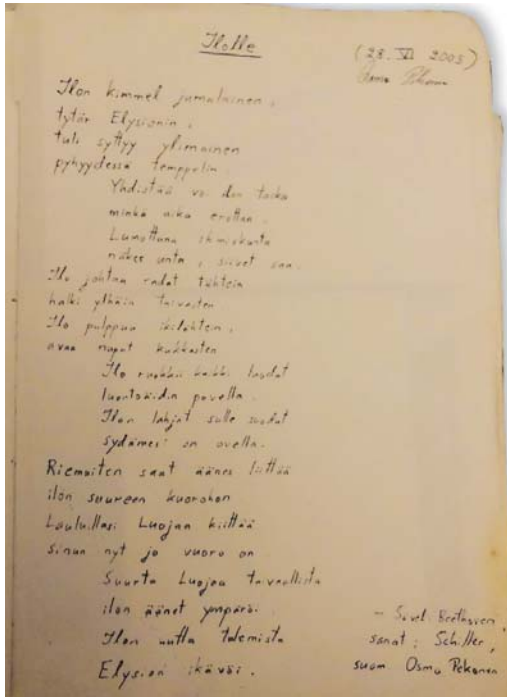 Ilolle
(28. VI 2005)
Osmo Pekonen
Ilon kimmel jumalainen,
tytär Elysionin,
tuli syttyy ylimäinen
pyhyydessä temppelin.
Yhdistää voi sun taika
minkä aika erottaa.
Lumottuna ihmiskunta
näkee unta, siivet saa.
Ilo johtaa radat tähtein
halki ylhäin taivasten
Ilo pulppuu ikilähtein,
avaa nuput kukkasten
Ilo ruokkii kaikki luodut
luontoäidin povella.
Ilon lahjat sulle suodut
sydämesi on ovella.
Riemuiten saat äänes liittää
ilon suureen kuorohon
Lauluillasi Luojan kiittää
sinun nyt jo vuoro on
Suurta Luojaa taivaallista
ilon äänet ympäröi.
Ilon uutta tulemista
Elysion ikävöi.
– Sävel: Beethoven,
sanat: Schiller,
suom Osmo Pekonen